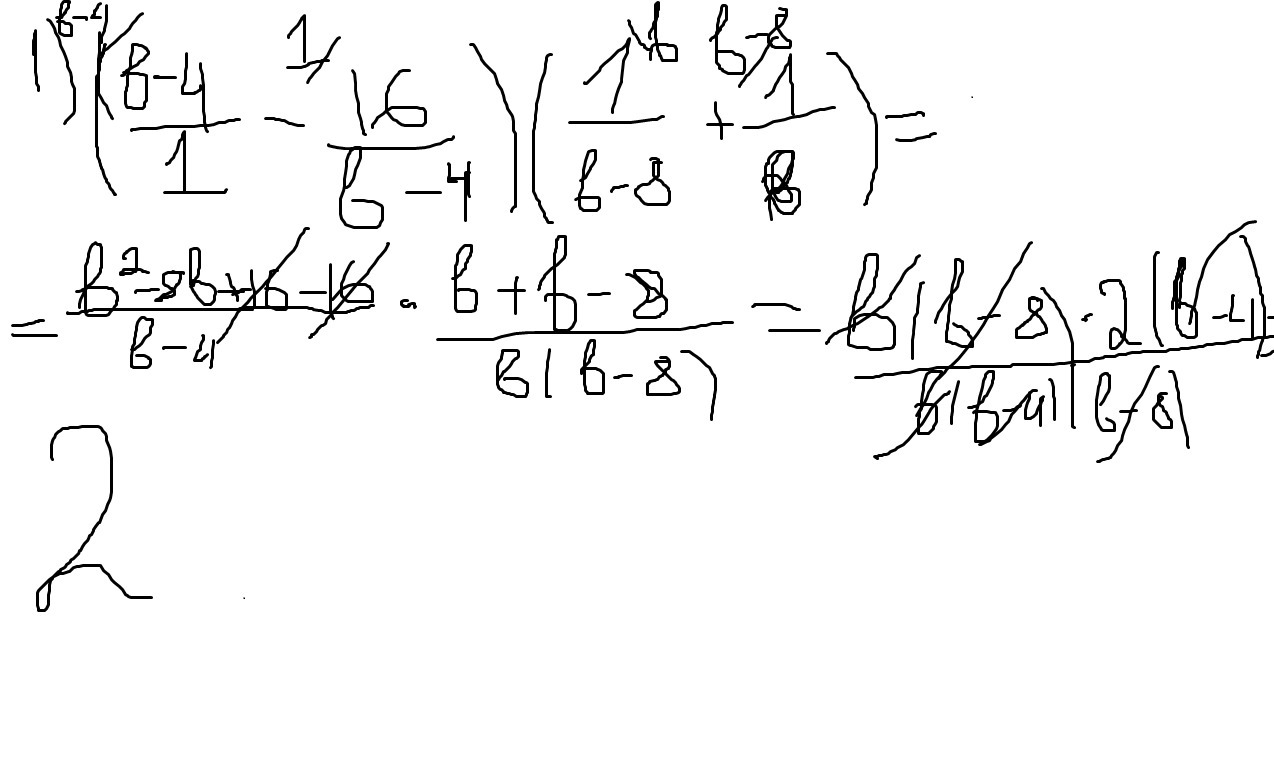 1) ((b-4)/1 - 16/(b-4)) (1/(b-8) + 1/b) =
= (b²-8b+16-16)/(b-4) · (b+b-8)/(b(b-8)) = (b(b-8)·2(b-4))/(b(b-4)(b-8)) =
2